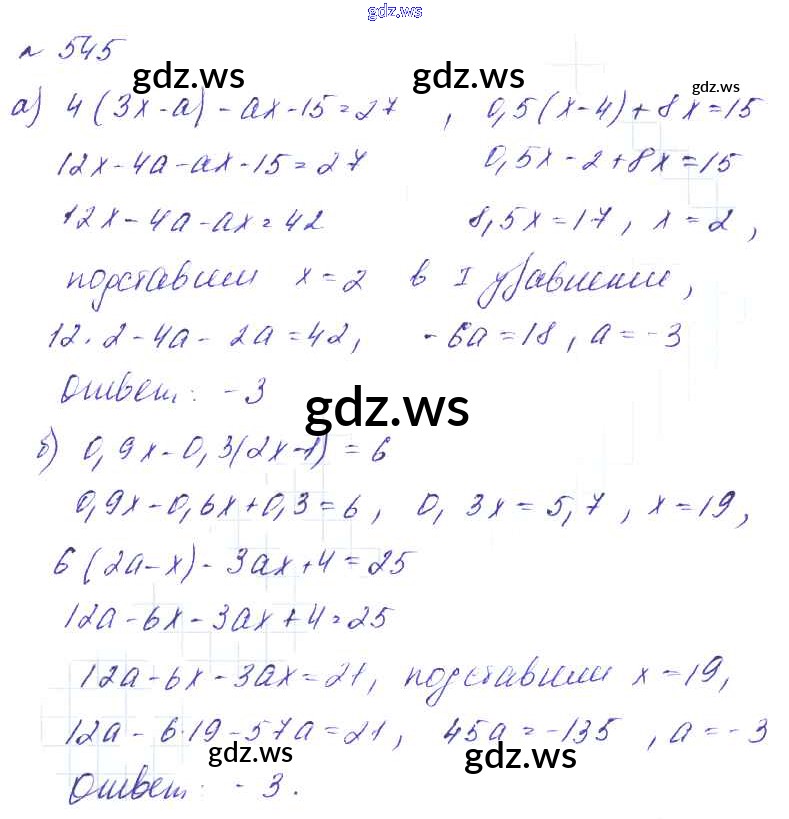 gdz.ws
№ 545
gdz.ws
gdz.ws
а) 4(3x-a)-ax-15=27 , 0,5(x-4)+8x=15
12x-4a-ax-15=27 0,5x-2+8x=15
12x-4a-ax=42 8,5x=17, x=2,
подставим x=2 в I уравнение,
12·2-4a-2a=42, -6a=18, a=-3
Ответ: -3
gdz.ws
б) 0,9x-0,3(2x-1)=6
0,9x-0,6x+0,3=6, 0,3x=5,7, x=19,
6(2a-x)-3ax+4=25
12a-6x-3ax+4=25
12a-6x-3ax=21, подставим x=19,
12a-6·19-57a=21, 45a=-135, a=-3
gdz.ws
gdz.ws
Ответ: -3.